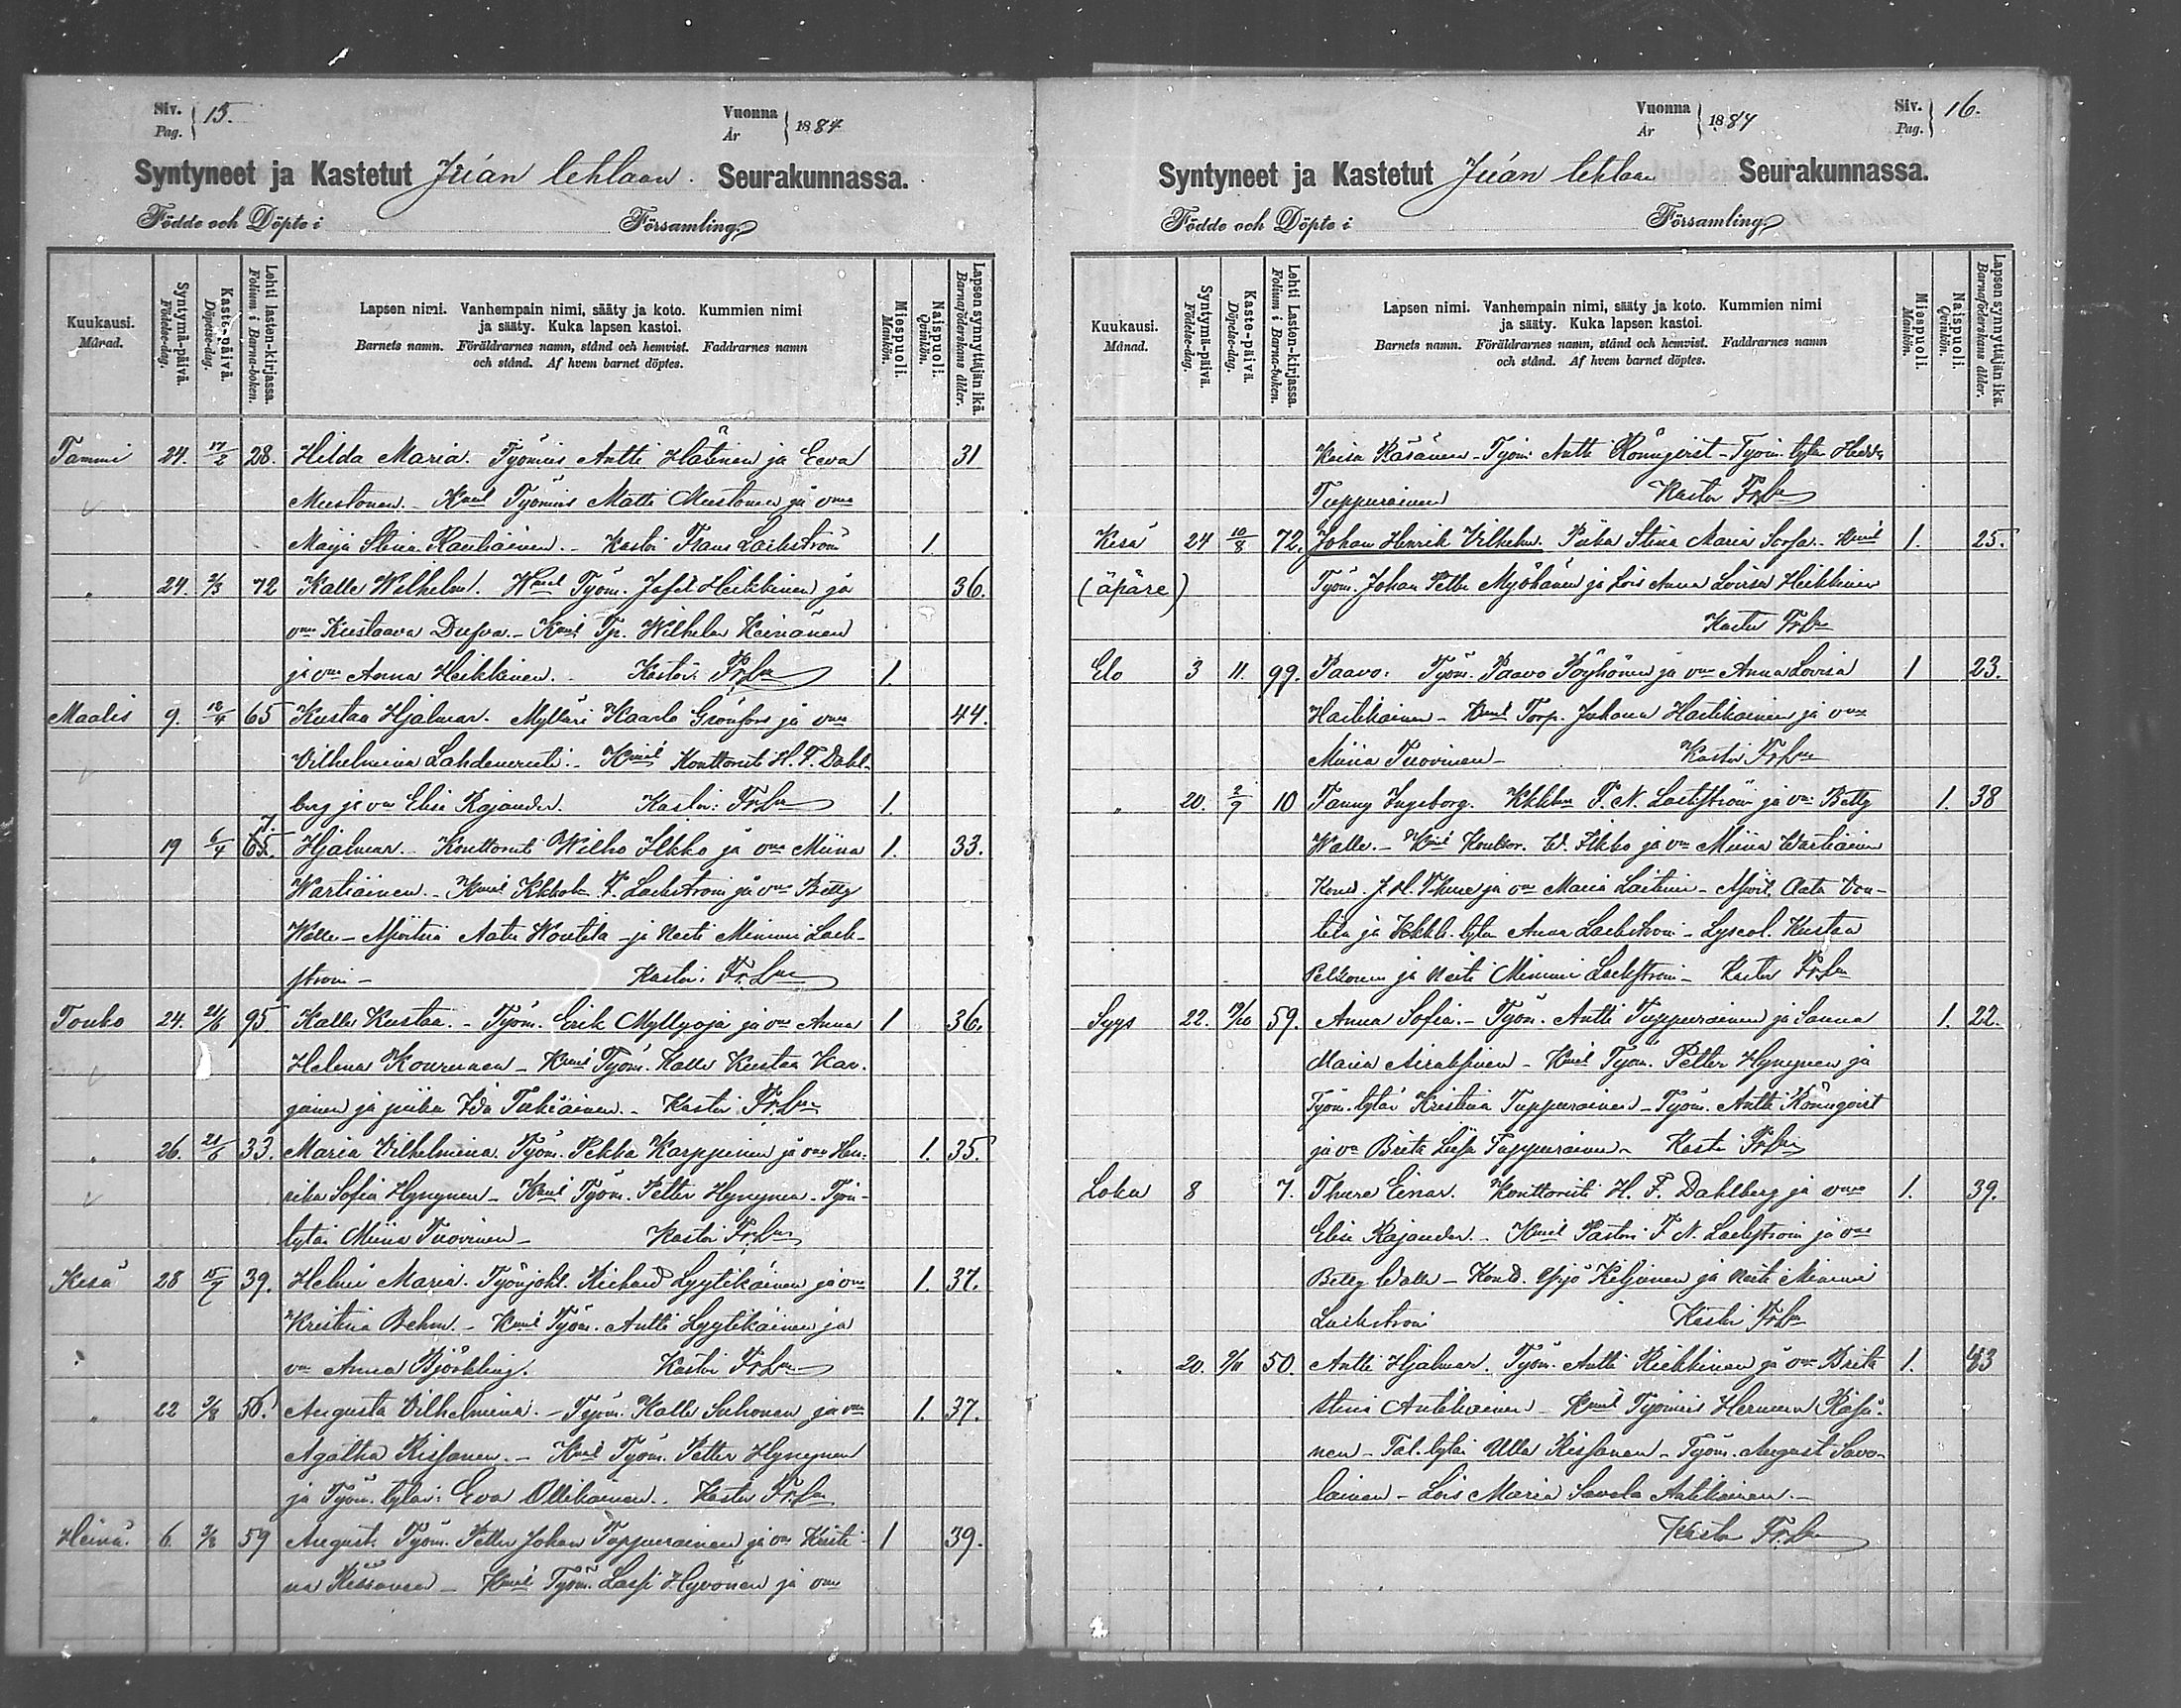 Siv. Pag. 15.
Vuonna År 1884
Syntyneet ja Kastetut Juán tehlaan. Seurakunnassa.
Födde och Döpte i Församling.
Kuukausi. Månad.
Syntymä-päivä. Födelse-dag.
Kaste-päivä. Döpelse-dag.
Lehti lasten-kirjassa. Folium i Barna-boken.
Lapsen nimi. Vanhempain nimi, sääty ja koto. Kummien nimi
ja sääty. Kuka lapsen kastoi.
Barnets namn. Föräldrarnes namn, stånd och hemvist. Faddrarnes namn
och stånd. Af hvem barnet döptes.
Miespuoli. Mankön.
Naispuoli. Qvinkön.
Lapsen synnyttäjän ikä. Barnaföderskans ålder.
Tammi 24. 17/2 28. Hilda Maria. Työmies Antti Hätinen ja Eeva 31
Mustonen. - Kmit Työmies Matti Mustonen ja vmo
Maija Stina Rautiainen. - Kastoi Frans Lackström 1
" 24. 2/3 72 Kalle Wilhelm. Työm. Jafet Heikkinen ja 36.
vmo Kustaava Dufva. - Kmit Tp. Wilhelm Keinänen
ja vmo Anna Heikkinen. - Kastoi: Fr. Lm 1.
Maalis 9. 18/4 65 Kustaa Hjalmar. Mylläri Kaarlo Grönfors ja vmo 44.
Vilhelmina Lahdenrinti. - Kmit Konttoristi H. F. Dahl-
berg ja vmo Elise Rajander. Kastoi: Fr. Lm 1.
19 6/4 65. 7. Hjalmar. - Konttoristi Wilho Ilkko ja vmo Miina 1. 33.
Wartiainen. - Kmit Kkhltn F. Lackström ja vmo Betty
Walle - Aatu Woutila - ja Neiti Mimmi Lack-
ström - Kastoi: Fr. Lm
Touko 24. 21/6 95. Kalle Kustaa. - Työm. Erik Myllyoja ja vmo Anna 1 36.
Helena Kourunen - Kmit Työm. Kalle Kustaa Kar-
jainen ja piika Ida Tukiainen. - Kastoi Fr. Lm
" 26. 21/6 33. Maria Vilhelmina. Työm. Pekka Karppinen ja vmo Hen- 1. 35.
rika Sofia Hynynen - Kmit Työm. Petter Hynynen - Työm-
tytär Miina Tuovinen - Kastoi Fr. Lm
Kesä 28 15/7 39. Helmi Maria. Työnjoht. Richard Lyytikäinen ja vmo 1. 37.
Kristina Behm. - Kmit Työm. Antti Lyytikäinen ja
vmo Anna Björkling. Kastoi Fr. Lm
" 22 3/8 56. Augusta Vilhelmina. - Työm. Kalle Suhonen ja vmo 1. 37.
Agatha Rissanen. - Kmit Työm. Petter Hynynen
ja Työm. tytär: Eva Ollikainen. Kastoi Fr. Lm
Heinä 6. 3/8 59 August. Työm. Petter Johan Tuppurainen ja vmo Kristi- 1 39.
na Rissanen - Kmit Työm. Lassi Hyvönen ja vmo
Siv. Pag. 16.
Vuonna År 1884
Syntyneet ja Kastetut Juán tehlaan Seurakunnassa.
Födde och Döpte i Församling.
Kuukausi. Månad.
Syntymä-päivä. Födelse-dag.
Kaste-päivä. Döpelse-dag.
Lehti Lasten-kirjassa. Folium i Barna-boken.
Lapsen nimi. Vanhempain nimi, sääty ja koto. Kummien nimi
ja sääty. Kuka lapsen kastoi.
Barnets namn. Föräldrarnes namn, stånd och hemvist. Faddrarnes namn
och stånd. Af hvem barnet döptes.
Miespuoli. Mankön.
Naispuoli. Qvinkön.
Lapsen synnyttäjän ikä. Barnaföderskans ålder.
Kaisa Räsänen - Työm: Antti Rönnqvist - Työm. tytär Hedda
Tuppurainen Kastoi Fr. Lm
Kesä 24 10/8 72. Johan Henrik Vilhelm. Piika Stina Maria Sorsa. - Kmit 1. 25.
(äpäre) Työm. Johan Petter Myöhänen ja Lois Anna Lovisa Heikkinen
Kastoi Fr. Lm
Elo 3 11. 99. Paavo. Työm. Paavo Pöyhönen ja vmo Anna Lovisa 1 23.
Hartikainen - Kmit Torp. Juhana Hartikainen ja vmo
Miina Tuovinen - Kastoi Fr. Lm
" 20. 2/9 10 Fanny Ingeborg. F. N. Lackström ja vmo Betty 1. 38
Walle. - Kmit Konttor. W. Ilkko ja vmo Miina Wartiainen
Kond. J. H. Thure ja vmo Maria Laitinen - Aatu Vou-
tila ja Kkhlt. tytär Anna Lackström - Lyseol. Kustaa
Pelkonen ja Neiti Mimmi Lackström - Kastoi Fr. Lm
Syys 22. 19/10 59. Anna Sofia. - Työm. Antti Tuppurainen ja Sanna 1. 22.
Maria Airaksinen - Kmit Työm. Petter Hynynen ja
Työm. tytär Kristina Tuppurainen - Työm. Antti Rönnqvist
ja vo Brita Liisa Tuppurainen - Kastoi Fr. Lm
Loka 8 7. Thure Einar. Konttoristi H. F. Dahlberg ja vmo 1. 39.
Elise Rajander. - Kmit Pastori F. N. Lackström ja vmo
Betty Walle - Kond. Yrjö Kiljunen ja Neiti Mimmi
Lackström Kastoi Fr. Lm
" 20. 9/11 50. Antti Hjalmar. Työm. Antti Kiekkinen ja vmo Brita 1. 43
Stina Antikainen - Kmit Työmies Herman Räsä-
nen - Tal. tytär Ulla Rissanen - Työm. August Savo-
lainen - Lois Maria Savola Antikainen. -
Kastoi Fr. Lm